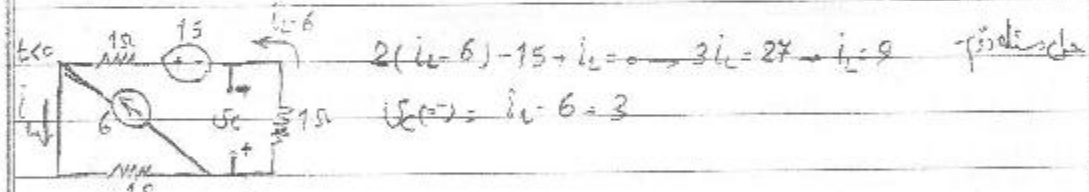 حل مسئله دوم-
t<0
1Ω
15
i_L-6
2(i_L-6)-15+i_L=0 → 3i_L=27 → i_L=9
i_L
6
v_c
1Ω
v_c(0-)= i_L-6=3
1Ω